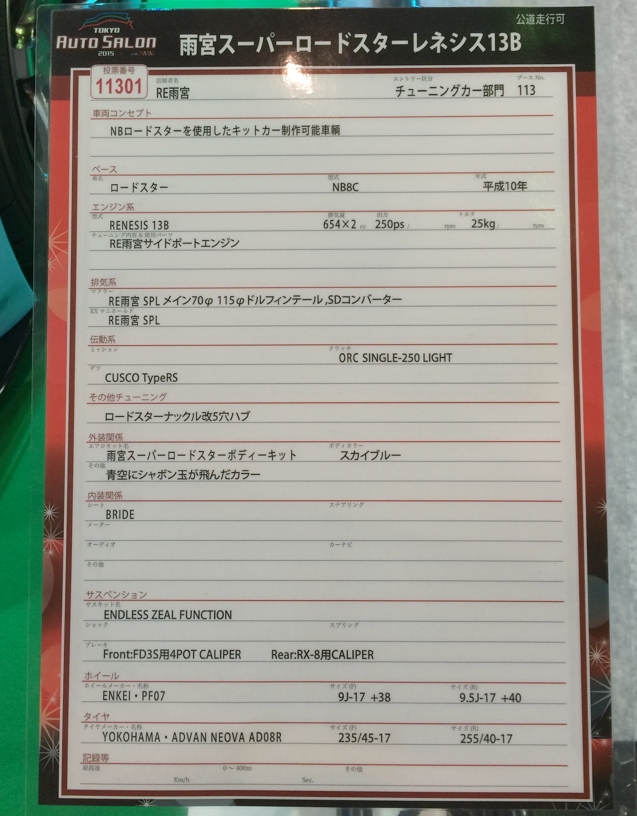 公道走行可
TOKYO
AUTO SALON
2015
雨宮スーパーロードスターレネシス13B
投票番号
11301
出展者名
RE雨宮
エントリー区分
チューニングカー部門
ブースNo.
113
車両コンセプト
NBロードスターを使用したキットカー制作可能車輌
ベース
車名
ロードスター
型式
NB8C
年式
平成10年
エンジン系
型式
RENESIS 13B
排気量
654×2 cc
出力
250ps / rpm
トルク
25kg / rpm
チューニング内容&使用パーツ
RE雨宮サイドポートエンジン
排気系
マフラー
RE雨宮 SPL メイン70φ 115φドルフィンテール ,SDコンバーター
EXマニホールド
RE雨宮 SPL
伝動系
ミッション
クラッチ
ORC SINGLE-250 LIGHT
デフ
CUSCO TypeRS
その他チューニング
ロードスターナックル改5穴ハブ
外装関係
エアロキット名
雨宮スーパーロードスターボディーキット
ボディカラー
スカイブルー
その他
青空にシャボン玉が飛んだカラー
内装関係
シート
BRIDE
ステアリング
メーター
オーディオ
カーナビ
その他
サスペンション
サスキット名
ENDLESS ZEAL FUNCTION
ショック
スプリング
ブレーキ
Front:FD3S用4POT CALIPER Rear:RX-8用CALIPER
ホイール
ホイールメーカー・名称
ENKEI・PF07
サイズ(F)
9J-17 +38
サイズ(R)
9.5J-17 +40
タイヤ
タイヤメーカー・名称
YOKOHAMA・ADVAN NEOVA AD08R
サイズ(F)
235/45-17
サイズ(R)
255/40-17
記録等
最高速
Km/h
0～400m
Sec.
その他